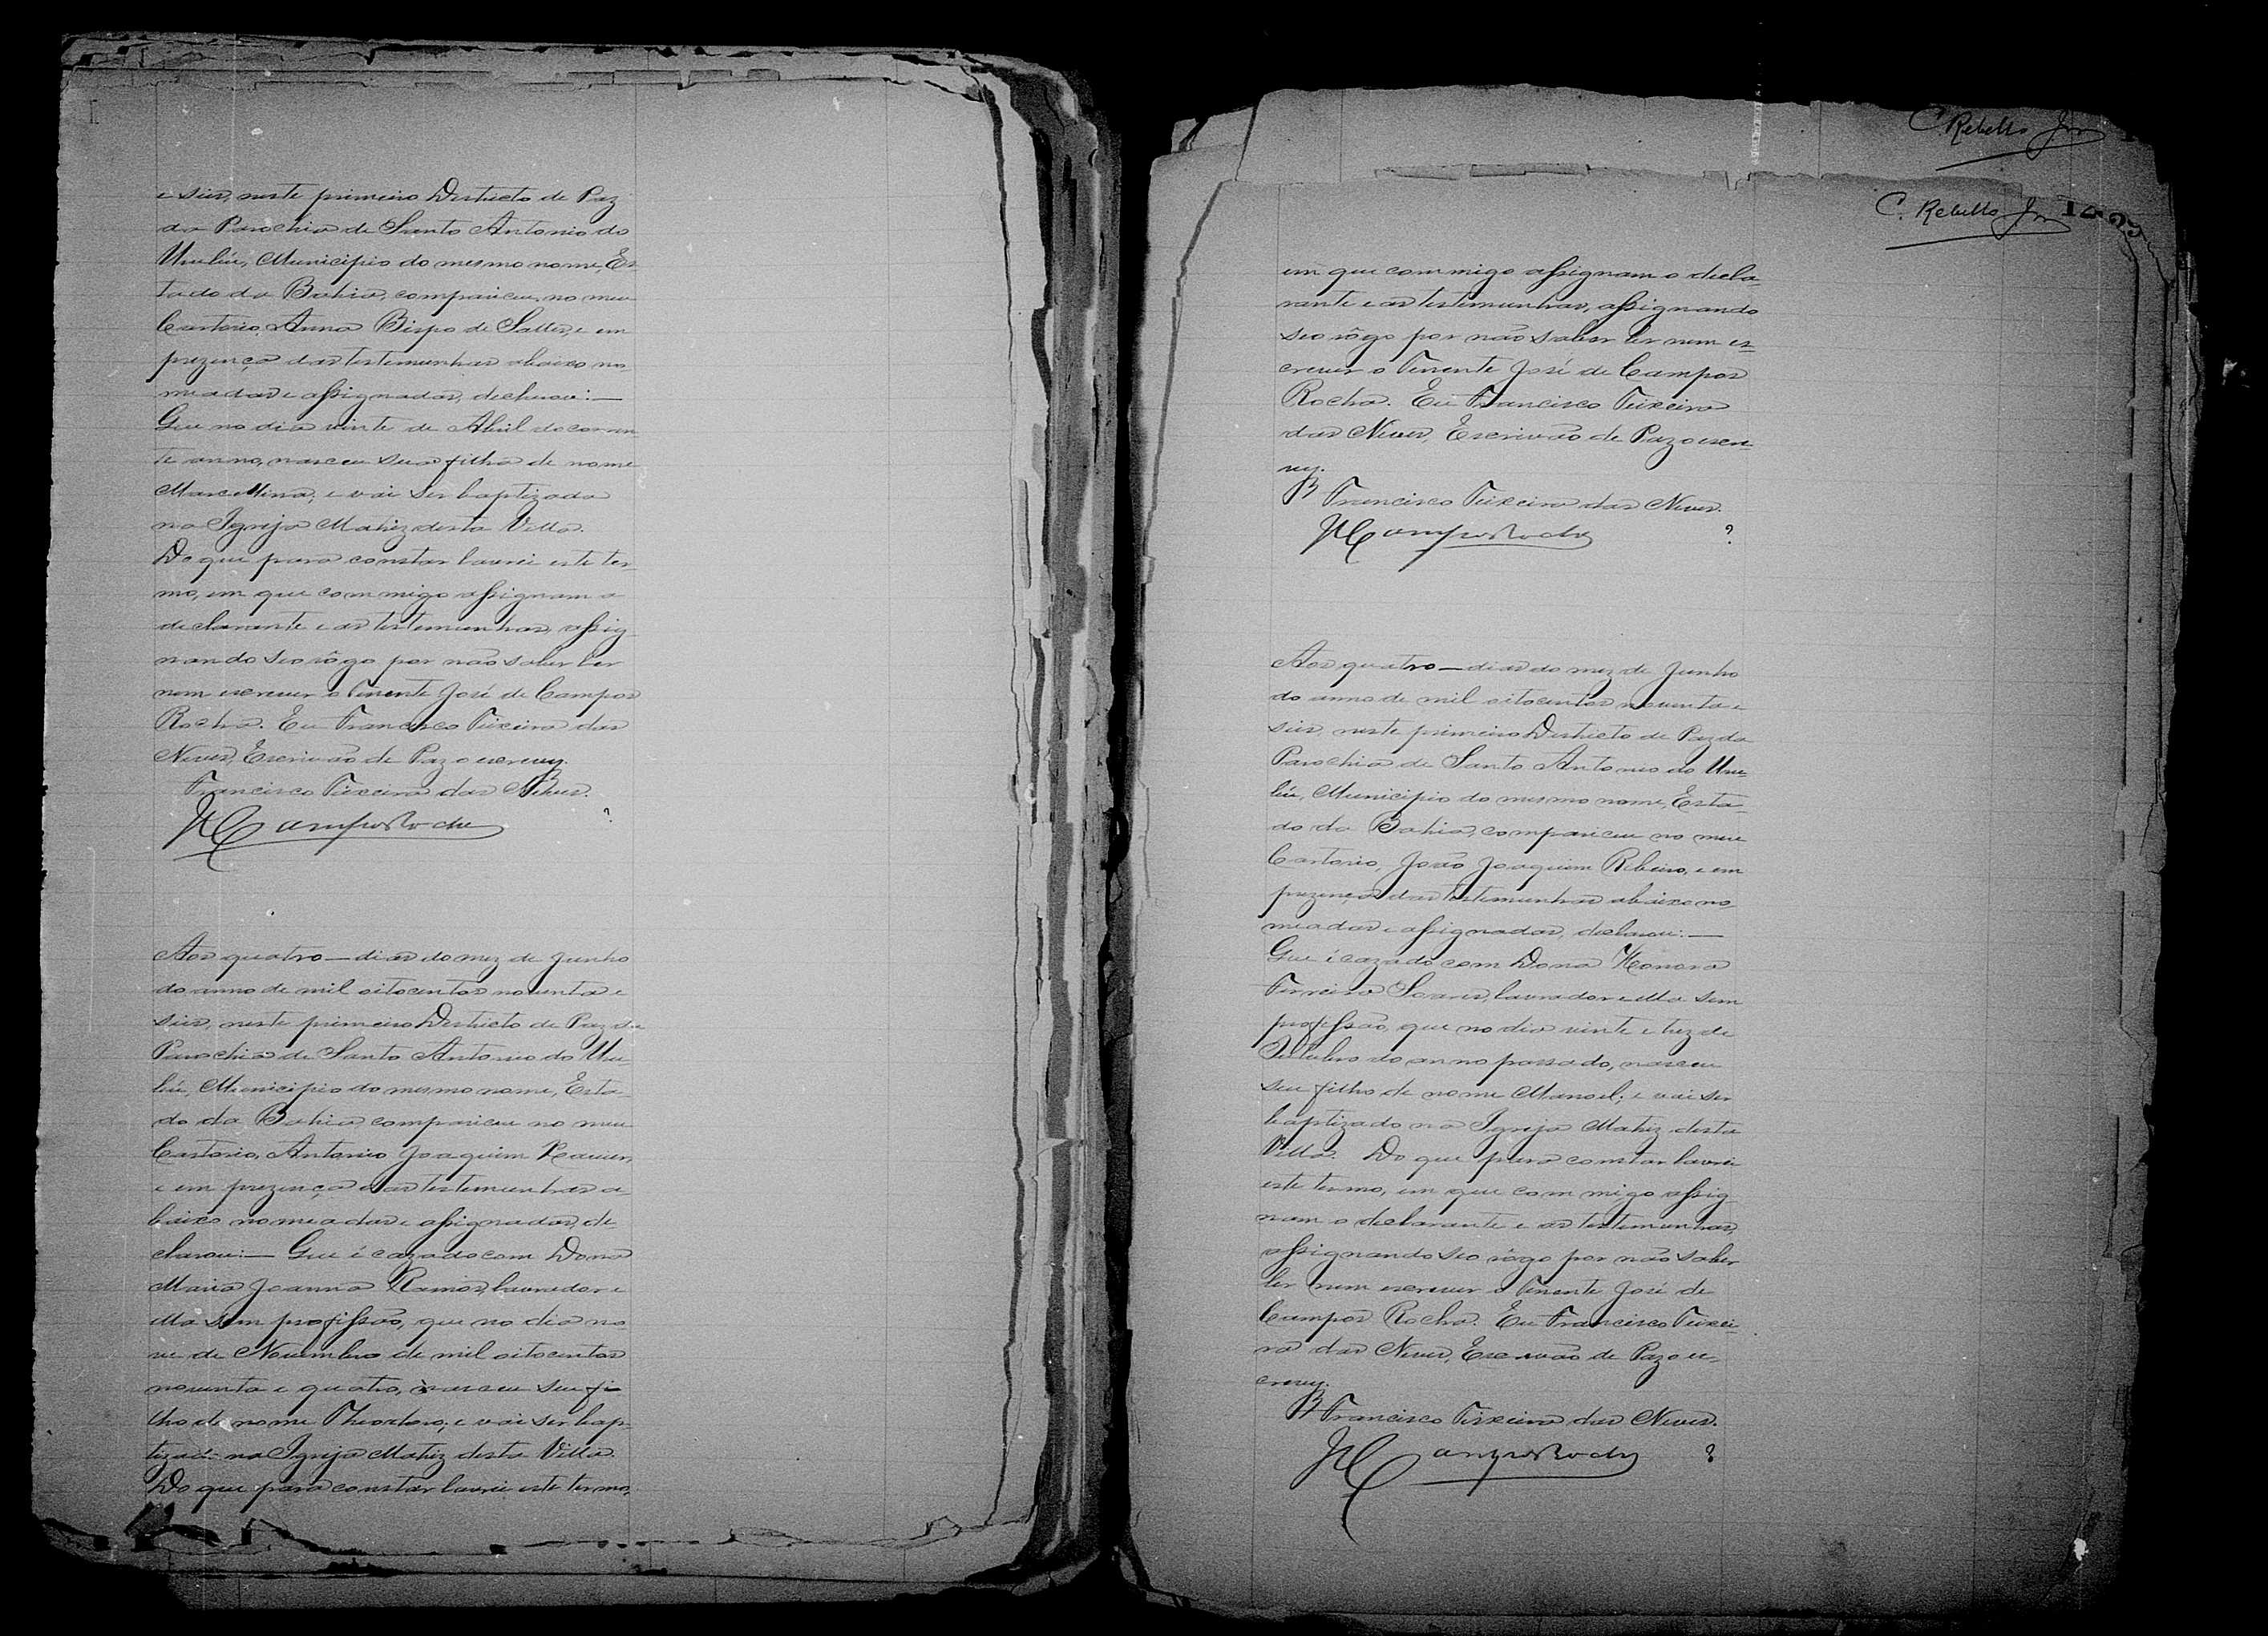 e seis, neste primeiro Districto de Paz
da Parochia de Santo Antonio do
Urubú, Municipio do mesmo nome, Es
tado da Bahia, compareceu, no meu
Cartorio, Anna Bispo de Salles, e em
prezença das testemunhas abaixo no-
meadas e assignadas, declarou:—
Que no dia vinte de Abril do corren
te anno, nasceu sua filha de nome
Marcellina; e vai ser baptizada
na Igreja Matriz desta Villa.
Do que para constar lavrei este ter-
mo, em que commigo assignam a
declarante e as testemunhas, assig
nando seo rôgo por não saber ler
nem escrever o Tenente José de Campos
Rocha. Eu Francisco Teixeira das
Neves, Escrivão de Paz o escrevy.
Francisco Teixeira das Neves.
JCamposRocha
Aos quatro — dias do mez de Junho
do anno de mil oitocentos noventa e
seis, neste primeiro Districto de Paz da
Parochia de Santo Antonio do Uru-
bú, Municipio do mesmo nome, Esta-
do da Bahia compareceu no meu
Cartorio, Antonio Joaquim Xavier,
e em prezença das testemunhas a-
baixo nomeadas e assignadas, de
clarou:— Que é cazado com Dona
Maria Joanna Ramos, lavrador e
ella sem profissão, que no dia no-
ve de Novembro de mil oitocentos
noventa e quatro, nasceu seu fi
lho de nome Theodoro; e vai ser bap-
tizado na Igreja Matriz desta Villa.
Do que para constar lavrei este termo,
C. Rebello Jor
C. Rebello Jor
em que commigo assignam o decla
rante e as testemunhas, assignando
seo rôgo por não saber ler nem es-
crever o Tenente José de Campos
Rocha. Eu Francisco Teixeira
das Neves, Escrivão de Paz o escre-
vy.
Francisco Teixeira das Neves.
JCamposRocha
Aos quatro — dias do mez de Junho
do anno de mil oitocentos noventa e
seis, neste primeiro Districto de Paz da
Parochia de Santo Antonio do Uru-
bú, Municipio do mesmo nome, Esta-
do da Bahia, compareceu no meu
Cartorio, João Joaquim Ribeiro, e em
prezença das testemunhas abaixo no-
meadas e assignadas, declarou:—
Que é cazado com Dona Honora
Ferreira Soares, lavrador e ella sem
profissão, que no dia vinte e trez de
Outubro do anno passado, nasceu
seu filho de nome Manoel; e vai ser
baptizado na Igreja Matriz desta
Villa. Do que para constar lavrei
este termo, em que commigo assig
nam o declarante e as testemunhas,
assignando seo rôgo por não saber
ler nem escrever o Tenente José de
Campos Rocha. Eu Francisco Teixei-
ra das Neves, Escrivão de Paz o es-
crevy.
Francisco Teixeira das Neves.
JCamposRocha